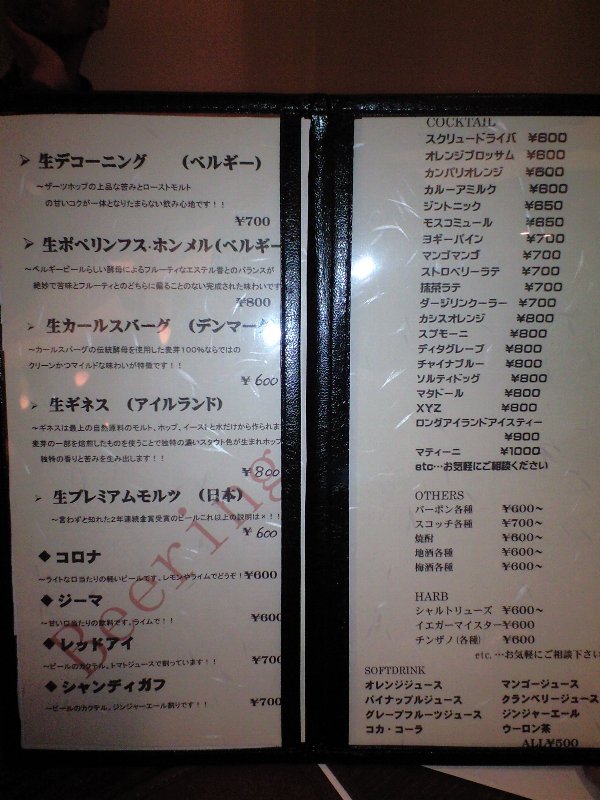 ➢ 生デコーニング (ベルギー)
～ザーツホップの上品な苦みとローストモルト
の甘いコクが一体となりたまらない飲み心地です！！
¥700
➢ 生ポペリンフス・ホンメル(ベルギー
～ベルギービールらしい酵母によるフルーティなエステル香とのバランスが
絶妙で苦味とフルーティとのどちらに偏ることのない完成された味わいです
¥800
➢ 生カールスバーグ (デンマーク
～カールスバーグの伝統酵母を使用した麦芽100%ならではの
クリーンかつマイルドな味わいが特徴です！！
¥ 600
➢ 生ギネス (アイルランド)
～ギネスは最上の自然原料のモルト、ホップ、イーストと水だけから作られま
麦芽の一部を焙煎したものを使うことで独特の濃いスタウト色が生まれホップ
独特の香りと苦みを生み出します！！
¥ 800
➢ 生プレミアムモルツ (日本)
～言わずと知れた2年連続金賞受賞のビールこれ以上の説明は×！！
¥ 600
◆ コロナ
～ライトな口当たりの軽いビールです。レモンやライムでどうぞ！¥600
◆ ジーマ
～甘い口当たりの飲料です。ライムで！！
¥600
◆ レッドアイ
～ビールのカクテル。トマトジュースで割っています！！
¥700
◆ シャンディガフ
～ビールのカクテル。ジンジャーエール割りです！！
¥700
Beering
COCKTAIL
スクリュードライバ ¥600
オレンジブロッサム ¥600
カンパリオレンジ ¥600
カルーアミルク ¥600
ジントニック ¥650
モスコミュール ¥650
ヨギーパイン ¥700
マンゴマンゴ ¥700
ストロベリーラテ ¥700
抹茶ラテ ¥700
ダージリンクーラー ¥700
カシスオレンジ ¥800
スプモーニ ¥800
ディタグレープ ¥800
チャイナブルー ¥800
ソルティドッグ ¥800
マタドール ¥800
XYZ ¥800
ロングアイランドアイスティー
¥900
マティーニ ¥1000
etc…お気軽にご相談ください
OTHERS
バーボン各種 ¥600～
スコッチ各種 ¥700～
焼酎 ¥600～
地酒各種 ¥600～
梅酒各種 ¥600～
HARB
シャルトリューズ ¥600～
イエガーマイスター¥600
チンザノ(各種) ¥600
etc. …お気軽にご相談下さい
SOFTDRINK
オレンジジュース マンゴージュース
パイナップルジュース クランベリージュース
グレープフルーツジュース ジンジャーエール
コカ・コーラ ウーロン茶
ALL¥500